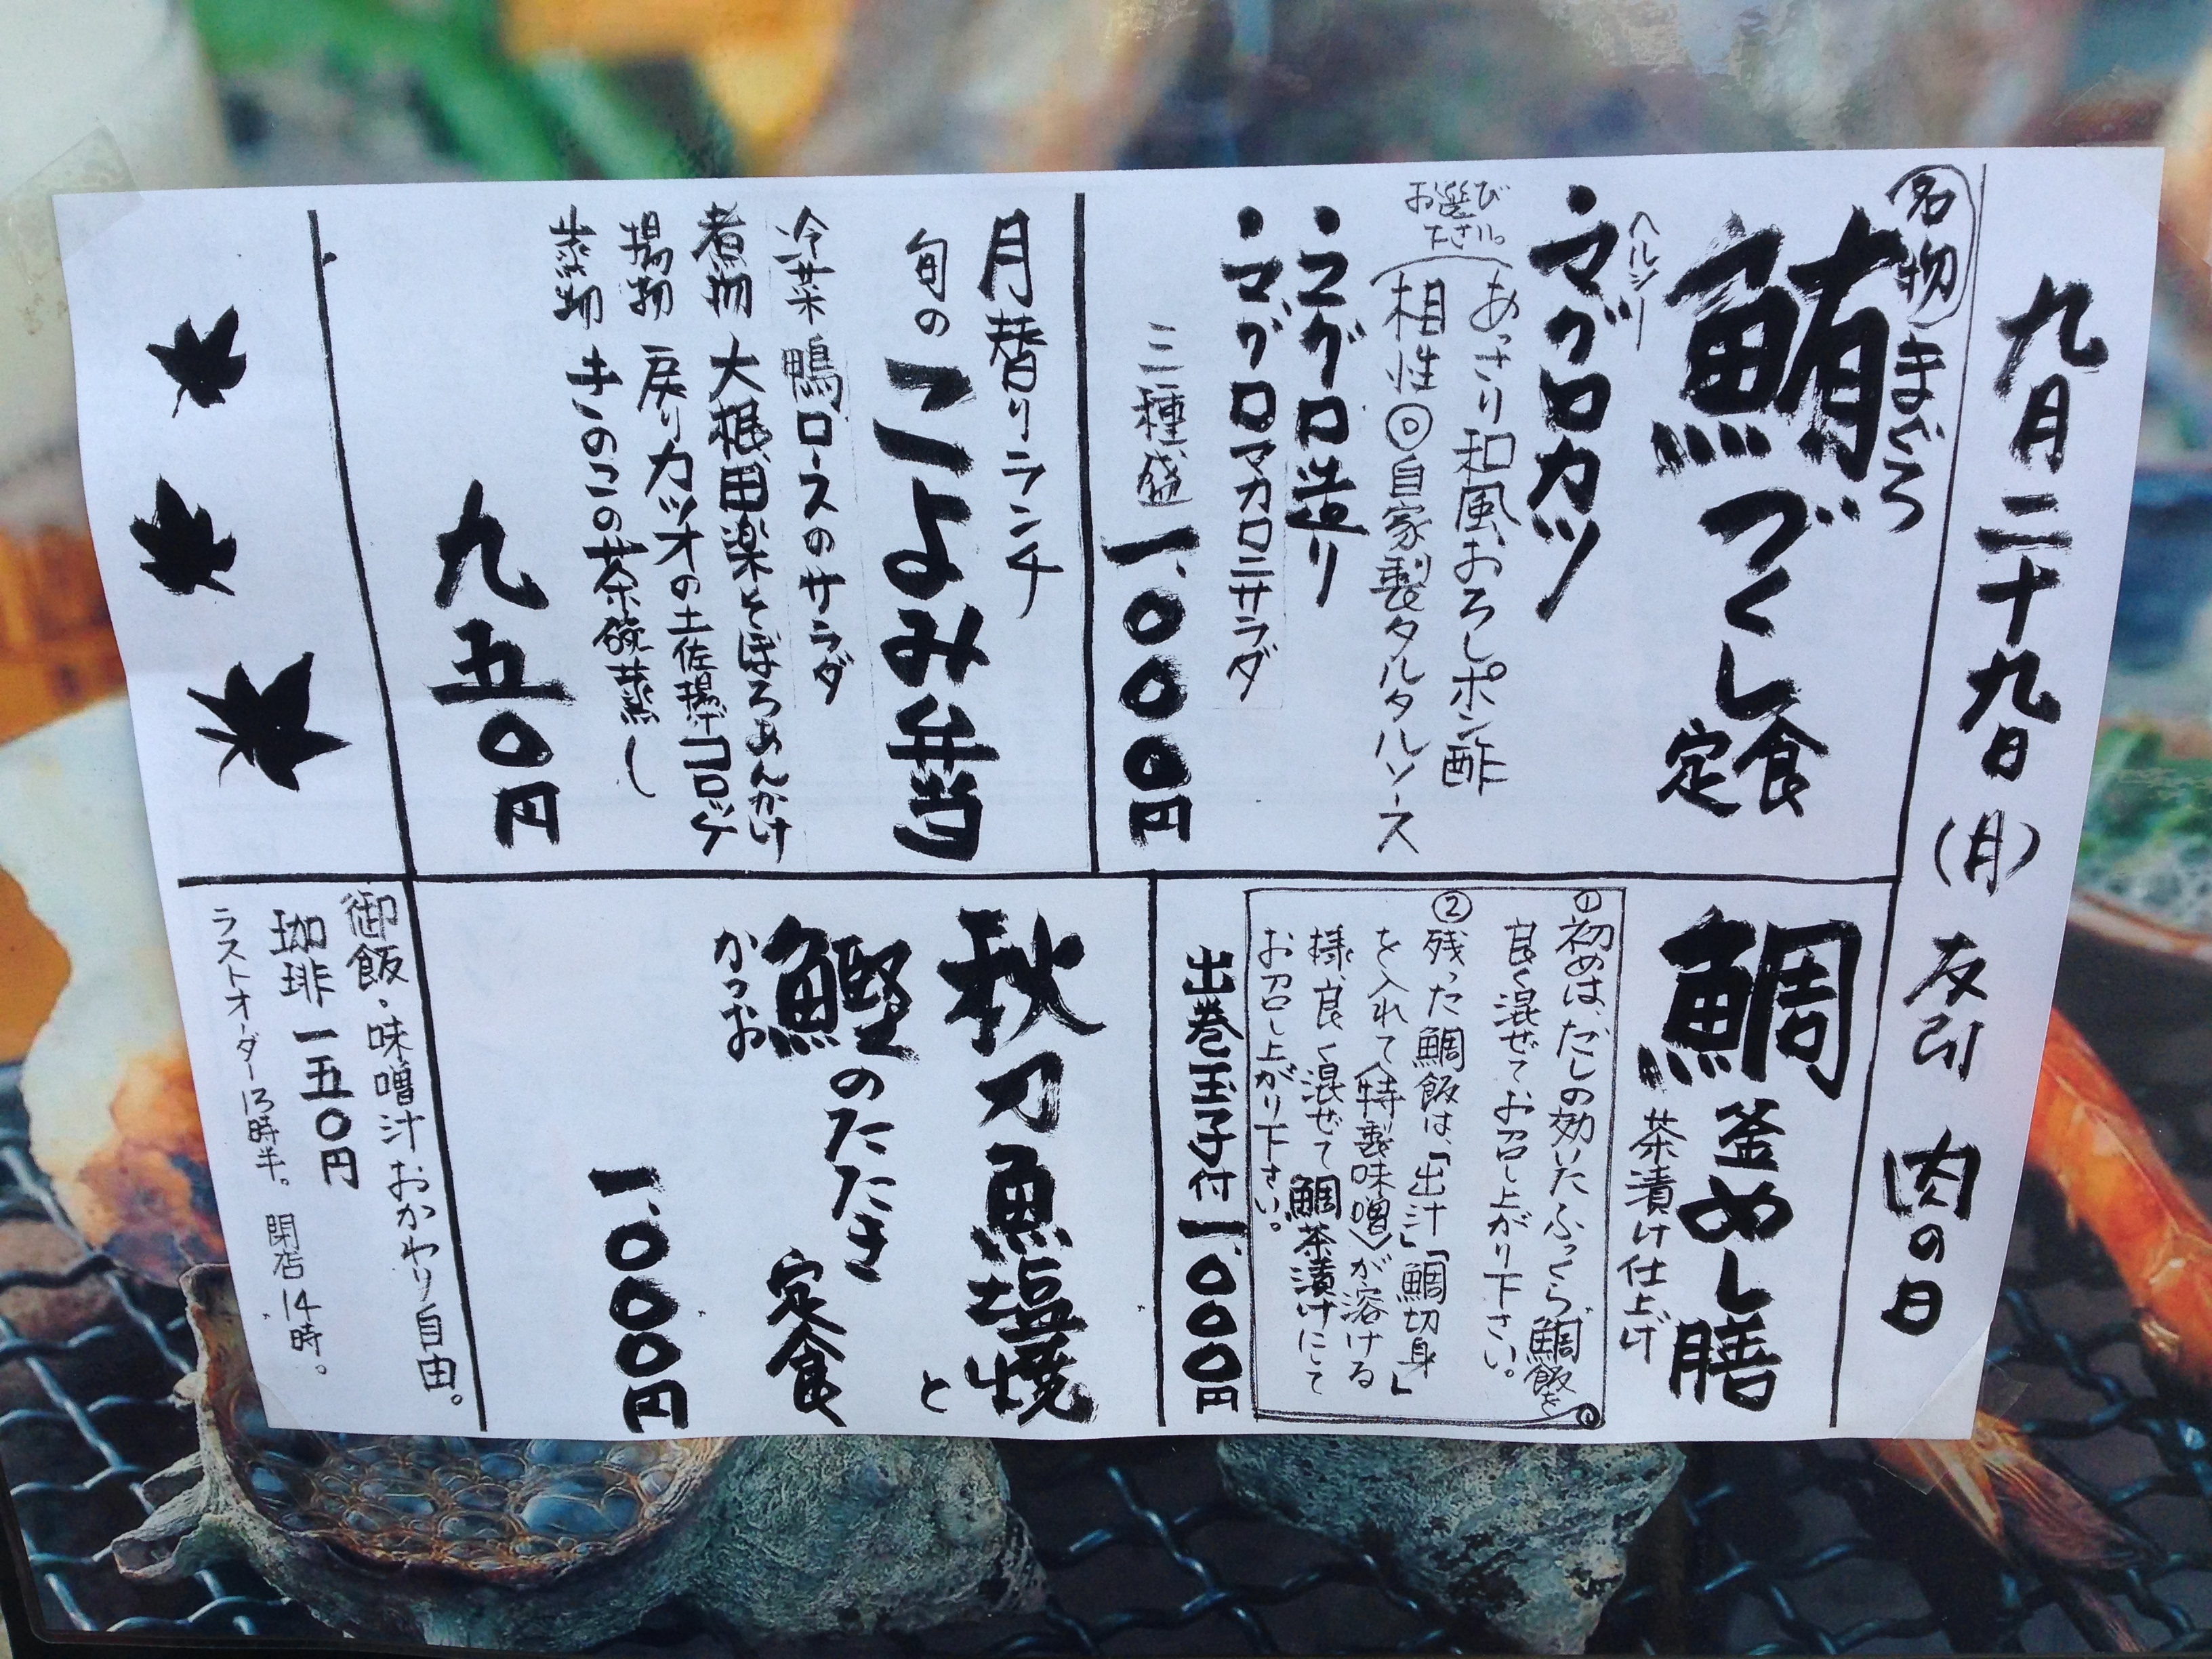 九月二十九日(月) 友引 肉の日
名物 まぐろ
鮪づくし定食
ヘルシー
・マグロカツ
お選び下さい。
あっさり和風おろしポン酢
相性◎自家製タルタルソース
・マグロ造り
・マグロマカロニサラダ
三種盛 一、〇〇〇円
鯛釜めし膳
茶漬け仕上げ
①初めは、だしの効いたふっくら鯛飯を
良く混ぜてお召し上がり下さい。
②残った鯛飯は、「出汁」「鯛切身」
を入れて〈特製味噌〉が溶ける
様、良く混ぜて鯛茶漬けにして
お召し上がり下さい。
出巻玉子付 一、〇〇〇円
月替りランチ
旬のこよみ弁当
冷菜 鴨ロースのサラダ
煮物 大根田楽そぼろあんかけ
揚物 戻りカツオの土佐揚げコロッケ
蒸物 きのこの茶碗蒸し
九五〇円
秋刀魚塩焼と
鰹のたたき定食
かつお
一、〇〇〇円
御飯・味噌汁おかわり自由。
珈琲 一五〇円
ラストオーダー13時半。 閉店14時。